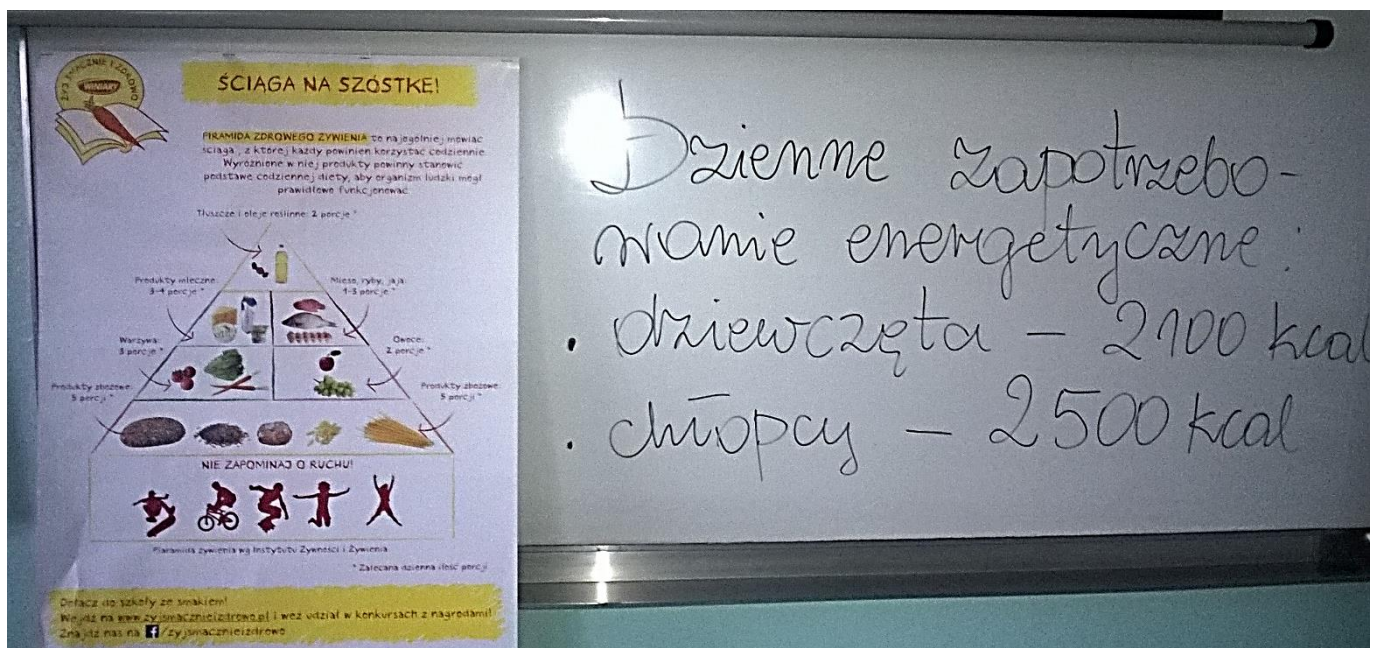 ŻYJ SMACZNIE I ZDROWO
WINIARY
ŚCIĄGA NA SZÓSTKĘ!
PIRAMIDA ZDROWEGO ŻYWIENIA to najogólniej mówiąc
ściąga, z której każdy powinien korzystać codziennie.
Wyróżnione w niej produkty powinny stanowić
podstawę codziennej diety, aby organizm ludzki mógł
prawidłowo funkcjonować.
Tłuszcze i oleje roślinne: 2 porcje *
Produkty mleczne:
3-4 porcje *
Mięso, ryby, jaja:
1-3 porcje *
Warzywa:
3 porcje *
Owoce:
2 porcje *
Produkty zbożowe:
5 porcji *
Produkty zbożowe:
5 porcji *
NIE ZAPOMINAJ O RUCHU!
Piaramida żywienia wg Instytutu Żywności i Żywienia
* Zalecana dzienna ilość porcji
Dołącz do szkoły ze smakiem!
Wejdź na www.zyjsmacznieizdrowo.pl i weź udział w konkursach z nagrodami!
Znajdź nas na f/zyjsmacznieizdrowo
Dzienne zapotrzebo-
wanie energetyczne:
. dziewczęta – 2100 kcal
. chłopcy – 2500 kcal